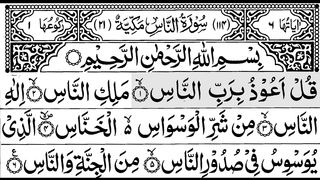 اٰيَاتُهَا ٦ (١١٤) سُوْرَةُ النَّاسِ مَكِّيَّةٌ (٢١) رُكُوْعُهَا ١
بِسْمِ اللّٰهِ الرَّحْمٰنِ الرَّحِيْمِ
قُلْ اَعُوْذُ بِرَبِّ النَّاسِ ۙ۱ مَلِكِ النَّاسِ ۙ۲ اِلٰهِ
النَّاسِ ۙ۳ مِنْ شَرِّ الْوَسْوَاسِ ۙ۬ الْخَنَّاسِ ۪ۙ۴ الَّذِیْ
یُوَسْوِسُ فِیْ صُدُوْرِ النَّاسِ ۙ۵ مِنَ الْجِنَّةِ وَالنَّاسِ ۠۶